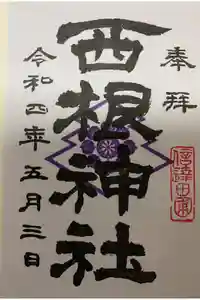 奉拝
西根神社
令和四年五月三日